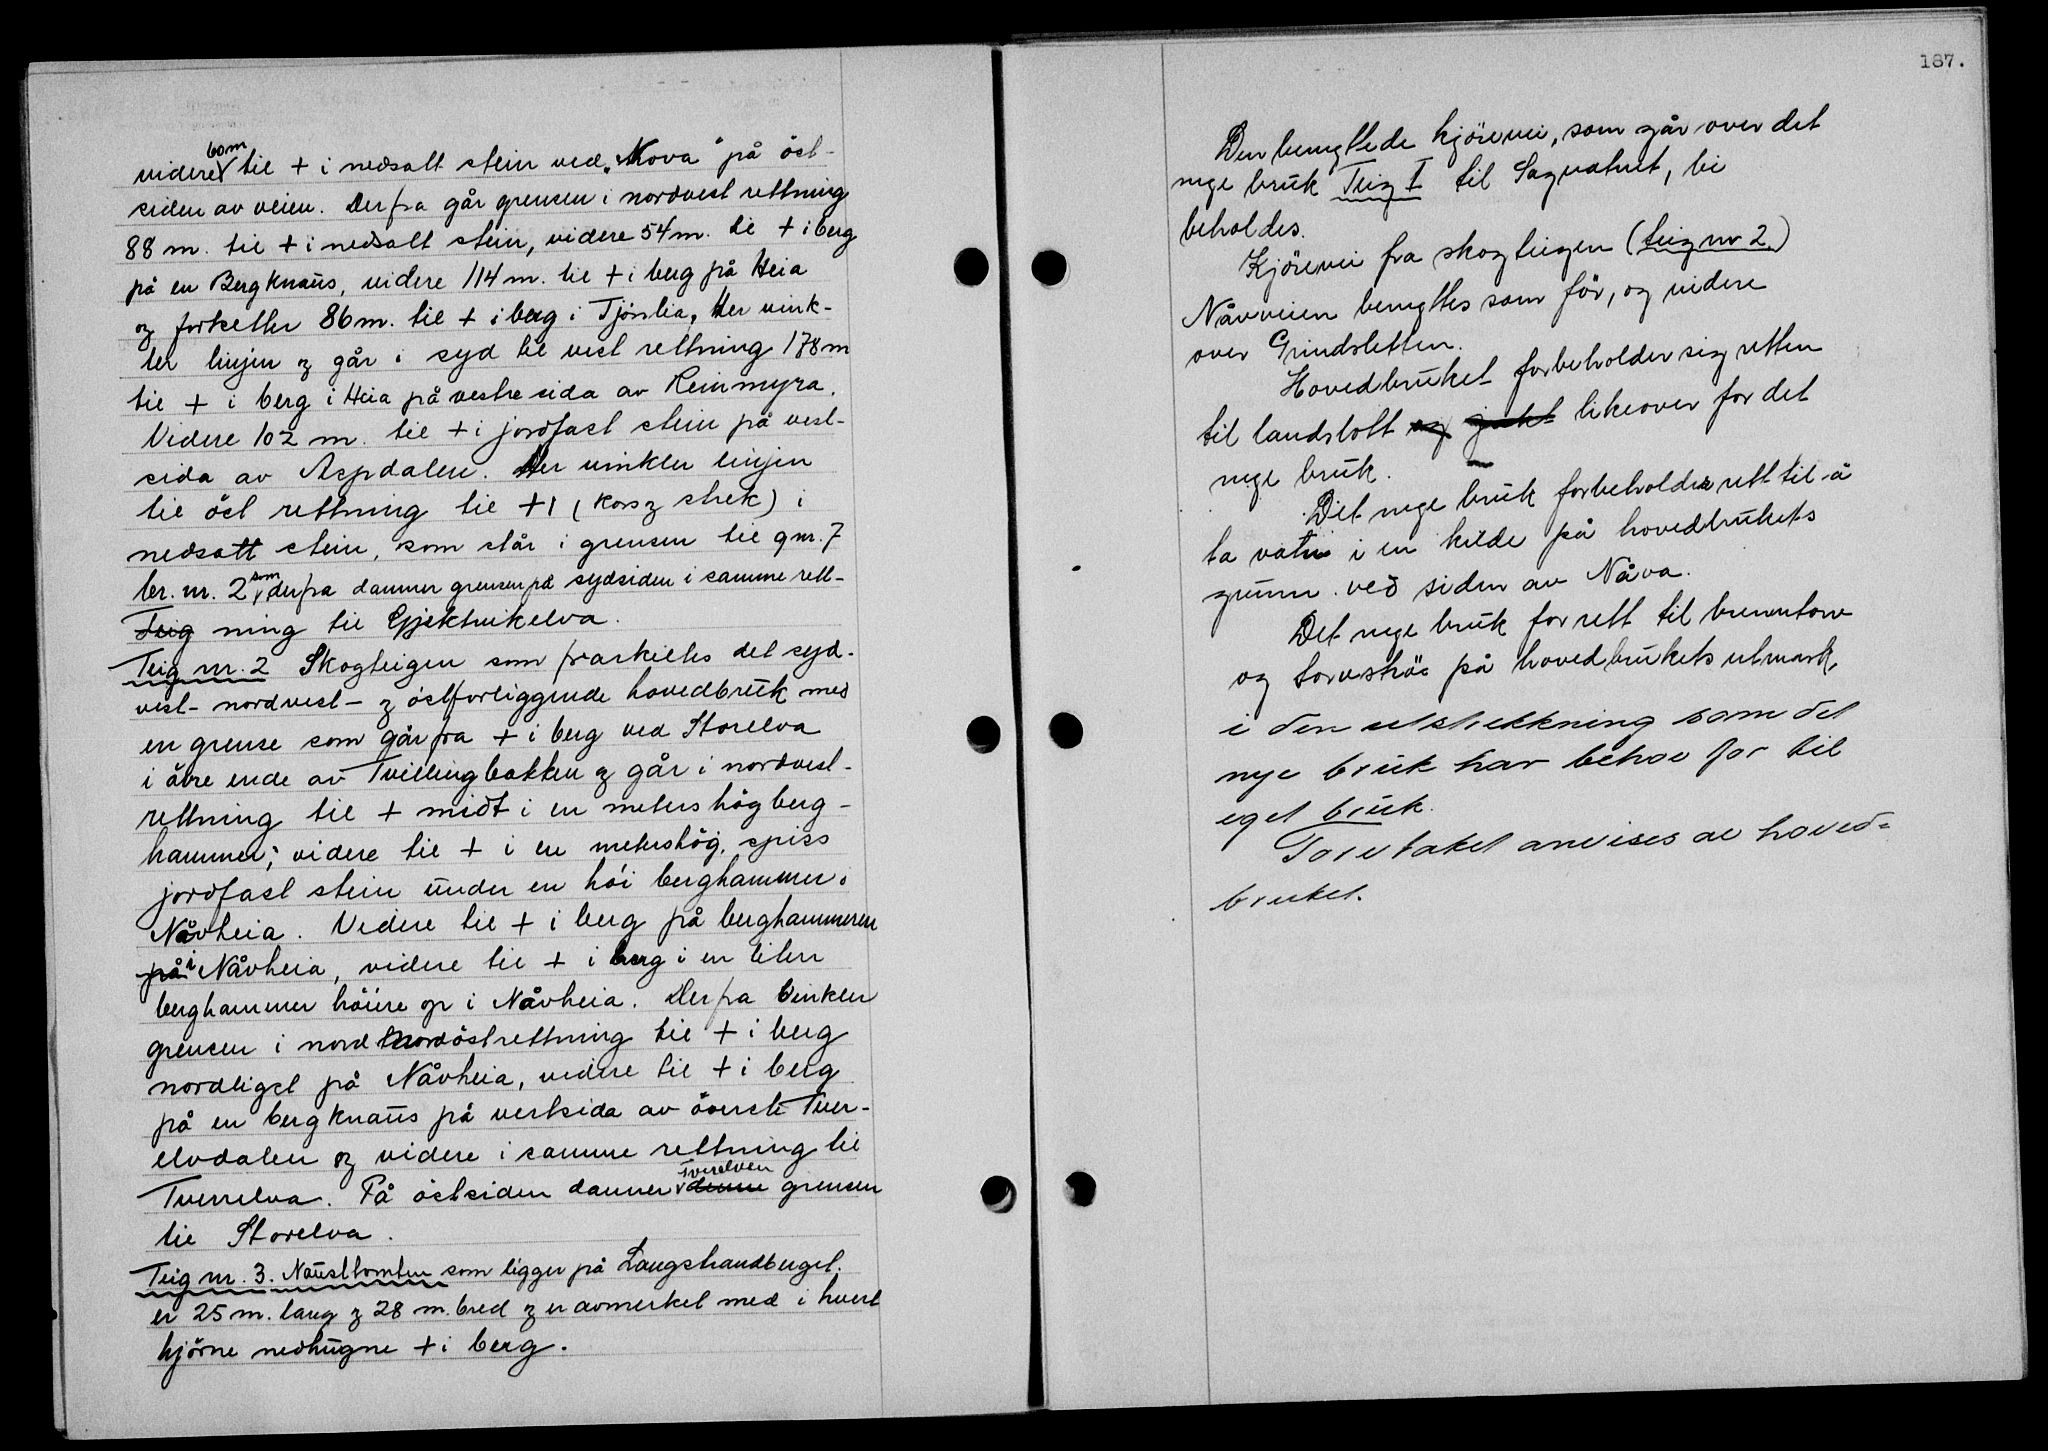 videre 60m til + i nedsatt stein ved „Nova" på öst-
siden av veien. Derfra går grensen i nordvest rettning
88 m. til + i nedsatt stein, videre 54 m. til + i berg
på en Bergknaus, videre 114 m. til + i berg på Heia
og fortsetter 86 m. til + i berg i Tjönlia, Her vink-
ler linjen og går i syd til vest rettning 178 m
til + i berg i Heia på vestre sida av Reinmyra.
Videre 102 m. til + i jordfast stein på vest-
sida av Aspdalen. Der vinkler linjen
til öst rettning til +1 (kors og strek) i
nedsatt stein, som står i grensen til gnr. 7
br. nr. 2 som derfra danner grensen på sydsiden i samme rett-
Teig ning til Gjektvikelva.
Teig nr. 2 Skogteigen som fraskilles det syd-
vest- nordvest- og östforliggende hovedbruk med
en grense som går fra + i berg ved Storelva
i övre ende av Tvillingbakken og går i nordvest-
rettning til + midt i en meters hög berg-
hammer; videre til + i en metershög, spiss
jordfast stein under en höi berghammer i
Nåvheia. Videre til + i berg på berghammeren
på i Nåvheia, videre til + i berg i en liten
berghammer höiere op i Nåvheia. Derfra vinkler
grensen i nord nordöstrettning til + i berg
nordligst på Nåvheia, videre til + i berg
på en bergknaus på vestsida av överste Tver-
elvdalen og videre i samme rettning til
Tverrelva. På östsiden danner Tverelven denne grensen
til Storelva.
Teig nr. 3. Nausttomten som ligger på Langstrandberget.
er 25 m. lang og 28 m. bred og er avmerket med i hvert
hjörne nedhugne + i berg.
187.
Den benyttede kjörevei, som går over det
nye bruk Teig I til Sagvatnet, bi
beholdes.
Kjörevei fra skogteigen (teig nr 2)
Nåvveien benyttes som för, og videre
over Grindsletten.
Hovedbruket forbeholder sig retten
til landslott og jakt likeover for det
nye bruk.
Det nye bruk forbeholdes rett til å
ta vatn i en kilde på hovedbrukets
grunn ved siden av Nåva.
Det nye bruk for rett til brenntorv
og torvströ på hovedbrukets utmark,
i den utstrekkning som det
nye bruk har behov for til
eget bruk.
Torvtaket anvises av hoved=
bruket.